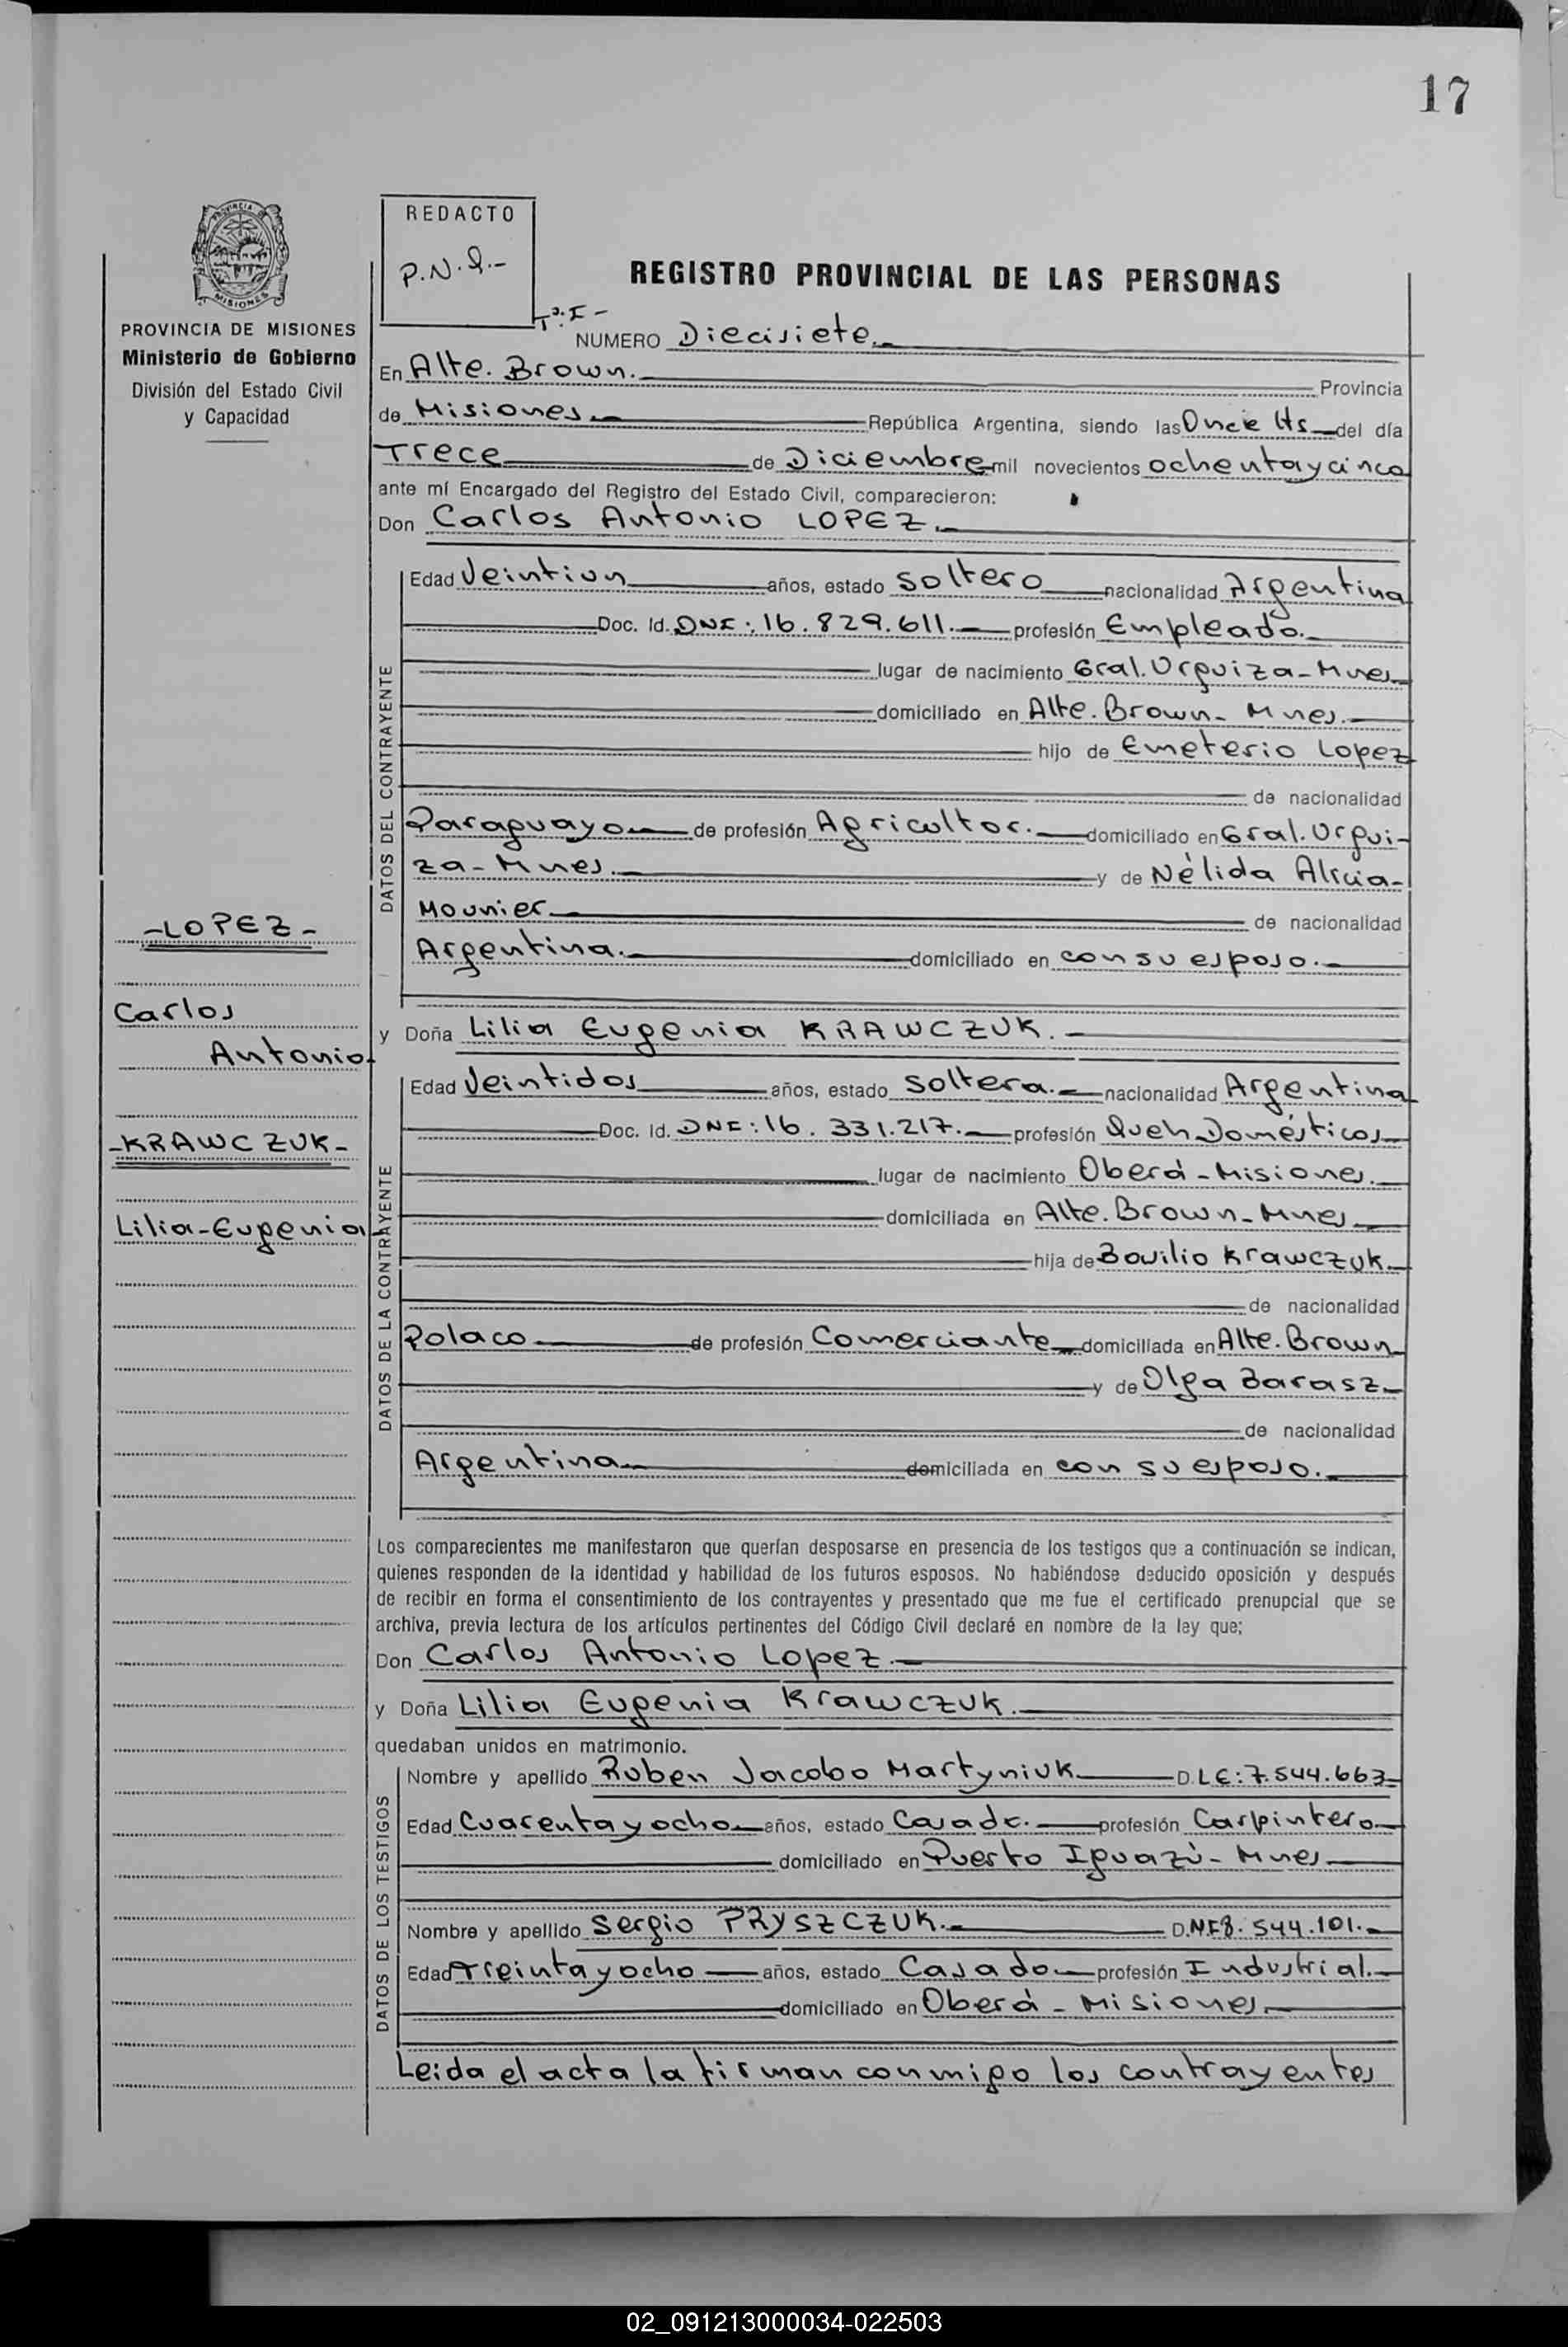 17
PROVINCIA DE MISIONES
Ministerio de Gobierno
División del Estado Civil
y Capacidad
-LOPEZ-
Carlos
Antonio
-KRAWCZUK-
Lilia-Eugenia
REDACTO
REGISTRO PROVINCIAL DE LAS PERSONAS
Tº. I -
NUMERO Diecisiete.
En Alte. Brown. Provincia
de Misiones República Argentina, siendo las Once Hs del día
Trece de Diciembre mil novecientos ochentaycinco
ante mí Encargado del Registro del Estado Civil, comparecieron:
Don Carlos Antonio LOPEZ.
DATOS DEL CONTRAYENTE
Edad Veintiun años, estado Soltero nacionalidad Argentina
Doc. Id. DNI: 16.829.611. profesión Empleado.
lugar de nacimiento Gral. Urquiza - Mnes
domiciliado en Alte. Brown - Mnes.
hijo de Emeterio Lopez
de nacionalidad
Paraguayo de profesión Agricultor. domiciliado en Gral. Urqui-
za - Mnes. y de Nélida Alicia-
Mounier de nacionalidad
Argentina. domiciliado en con su esposo.
y Doña Lilia Eugenia KRAWCZUK.
DATOS DE LA CONTRAYENTE
Edad Veintidos años, estado Soltera. nacionalidad Argentina
Doc. Id. DNI: 16.331.217. profesión Queh Domésticos
lugar de nacimiento Oberá - Misiones.
domiciliada en Alte. Brown - Mnes
hija de Bouilio Krawczuk.
de nacionalidad
Polaco de profesión Comerciante domiciliada en Alte. Brown
y de Olga Barasz
de nacionalidad
Argentina domiciliada en con su esposo.
Los comparecientes me manifestaron que querían desposarse en presencia de los testigos que a continuación se indican,
quienes responden de la identidad y habilidad de los futuros esposos. No habiéndose deducido oposición y después
de recibir en forma el consentimiento de los contrayentes y presentado que me fue el certificado prenupcial que se
archiva, previa lectura de los artículos pertinentes del Código Civil declaré en nombre de la ley que;
Don Carlos Antonio Lopez.
y Doña Lilia Eugenia Krawczuk.
quedaban unidos en matrimonio.
DATOS DE LOS TESTIGOS
Nombre y apellido Ruben Jacobo Martyniuk D. LE: 7.544.663
Edad Cuarentayocho años, estado Casado. profesión Carpintero
domiciliado en Puerto Iguazú - Mnes
Nombre y apellido Sergio PRYSZCZUK. D.N.I 8.544.101.
Edad Treintayocho años, estado Casado profesión Industrial.
domiciliado en Oberá - Misiones
Leida el acta la firman conmigo los contrayentes
02_091213000034-022503